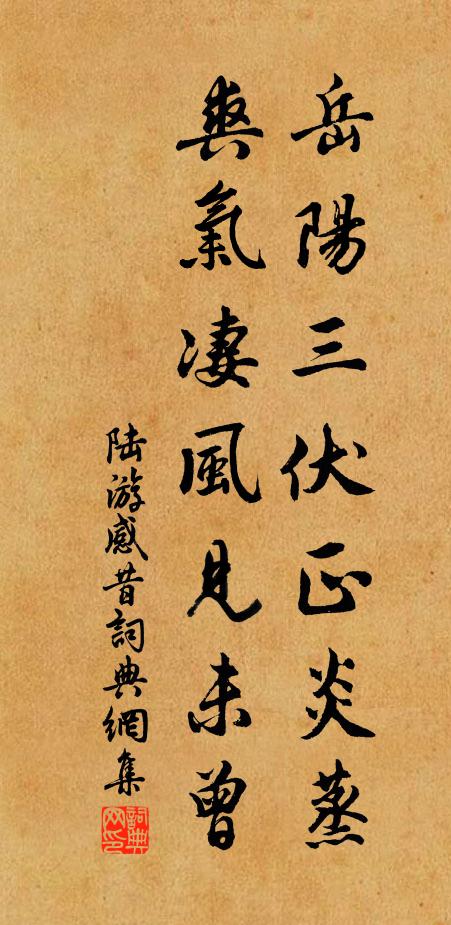 岳陽三伏正炎蒸
爽氣凄風見未曾
陆游感昔詞典網集
詞典网印